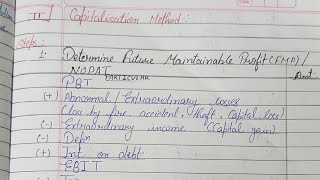 II Capitalisation Method:
Steps:
1. Determine Future Maintainable Profit (FMP) /
NOPAT
PARTICULAR
Amt.
PBT
(+) Abnormal / Extraordinary losses
(loss by fire, accident, theft, capital loss)
(-) Extraordinary income (Capital gain)
(-) Depn
(+) Int. on debt
EBIT